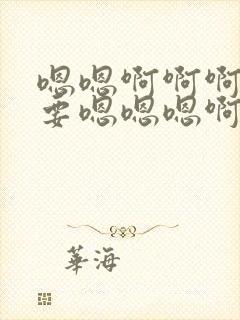 嗯嗯啊啊啊
要嗯嗯嗯啊
華海